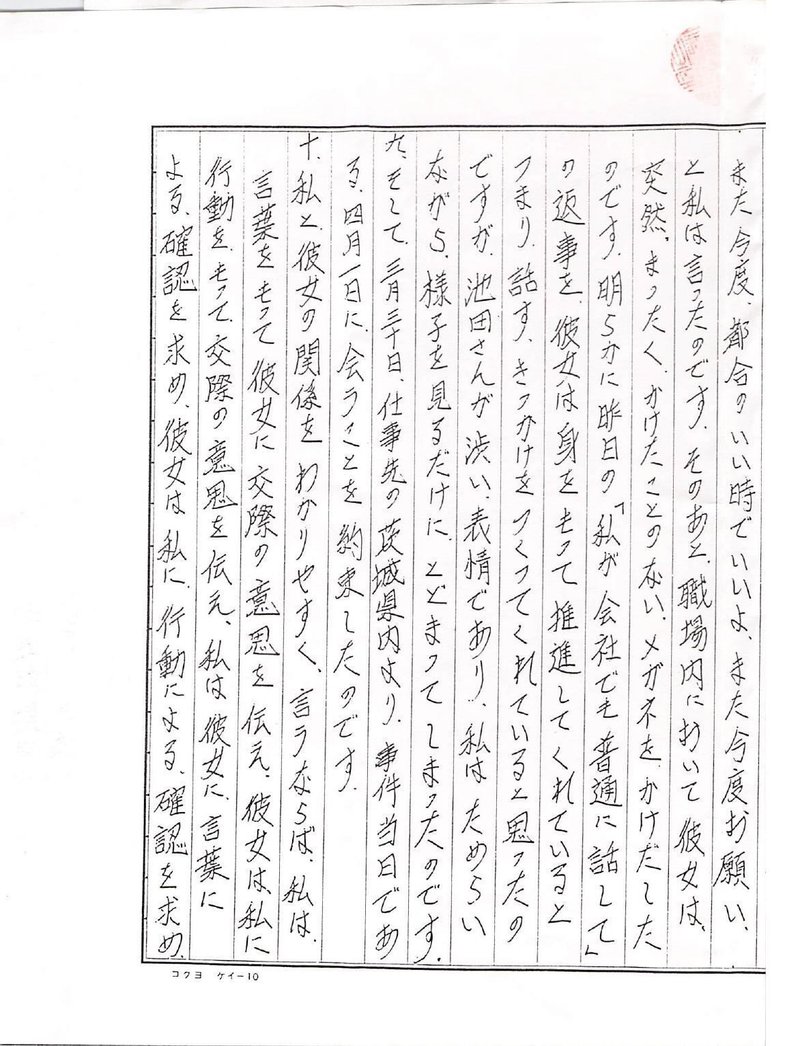 また今度、都合のいい時でいいよ、また今度お願い、
と私は言ったのです。そのあと、職場内において彼女は、
突然、まったく、かけたことのない、メガネを、かけだした
のです。明らかに昨日の「私が会社でも普通に話して」
の返事を、彼女は身をもって推進してくれていると
つまり、話す、きっかけをつくってくれていると思ったの
ですが、池田さんが渋い、表情であり、私はためらい
ながら、様子を見るだけに、とどまってしまったのです。
九、そして、三月三十日、仕事先の茨城県内より、事件当日であ
る、四月一日に、会うことを約束したのです。
十、私と彼女の関係をわかりやすく、言うならば、私は、
言葉をもって彼女に交際の意思を伝え、彼女は、私に
行動を、もって、交際の意思を伝え、私は彼女に、言葉に
よる、確認を求め、彼女は私に、行動による、確認を求め、
コクヨ ケイー10